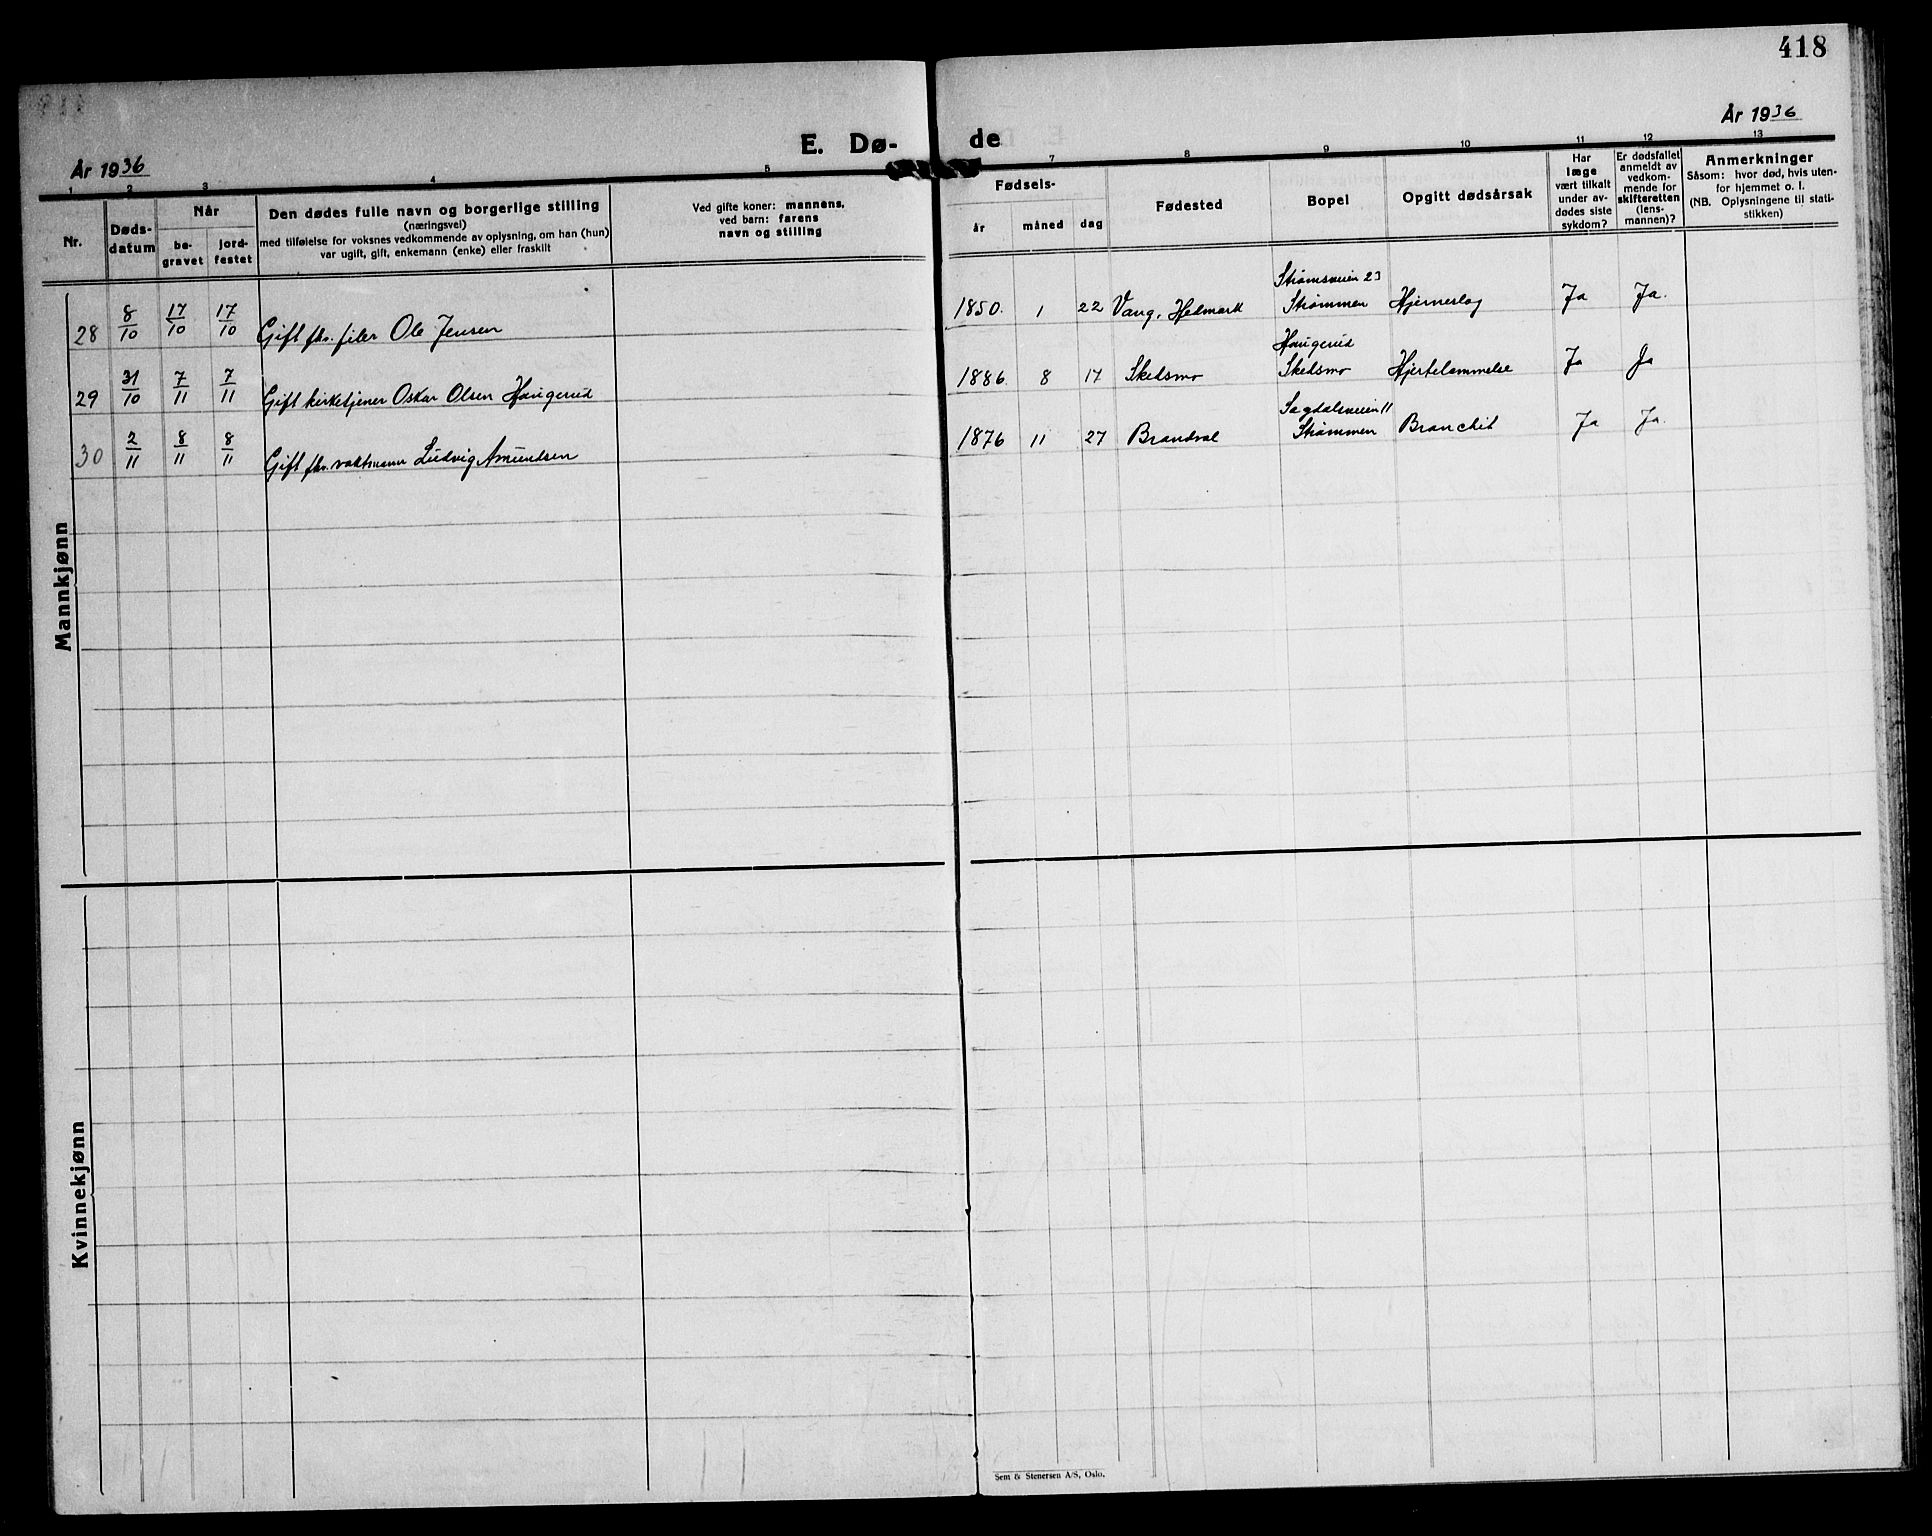 418
År 1936
År 1936
E. Dø-
de
1 2 3 4 5 7 8 9 10 11 12 13
Nr.
Døds-
datum
Når
be-
gravet
jord-
festet
Den dødes fulle navn og borgerlige stilling
(næringsvei)
med tilføielse for voksnes vedkommende av oplysning, om han (hun)
var ugift, gift, enkemann (enke) eller fraskilt
Ved gifte koner: mannens,
ved barn: farens
navn og stilling
Fødsels-
år
måned
dag
Fødested
Bopel
Opgitt dødsårsak
Har
læge
vært tilkalt
under av-
dødes siste
sykdom?
Er dødsfallet
anmeldt av
vedkom-
mende for
skifteretten
(lens-
mannen)?
Anmerkninger
Såsom: hvor død, hvis uten-
for hjemmet o. l.
(NB. Oplysningene til stati-
stikken)
Mannkjønn
28 8/10 17/10 17/10 Gift fhv. filer Ole Jensen 1850. 1 22 Vang, Hedmark Strømsveien 23
Strømmen Hjerneslag Ja Ja.
29 31/10 7/11 7/11 Gift kirketjener Oskar Olsen Haugerud 1886. 8 17 Skedsmo Haugerud
Skedsmo Hjertelammelse Ja Ja
30 2/11 8/11 8/11 Gift fhv. vaktmann Ludvig Amundsen 1876 11 27 Brandval Sagdalsveien 11
Strømmen Bronchit Ja Ja.
Kvinnekjønn
Sem & Stenersen A/S, Oslo.